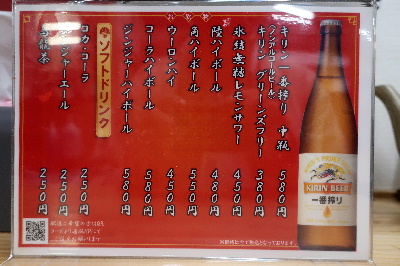 キリン一番搾り 中瓶 580円
(ノンアルコールビール)
キリン グリーンズフリー 380円
氷結無糖レモンサワー 450円
陸ハイボール 480円
角ハイボール 550円
ウーロンハイ 450円
コーラハイボール 580円
ジンジャーハイボール 580円
ソフトドリンク
コカ・コーラ 250円
ジンジャーエール 250円
烏龍茶 250円
KIRIN BEER
一番搾り